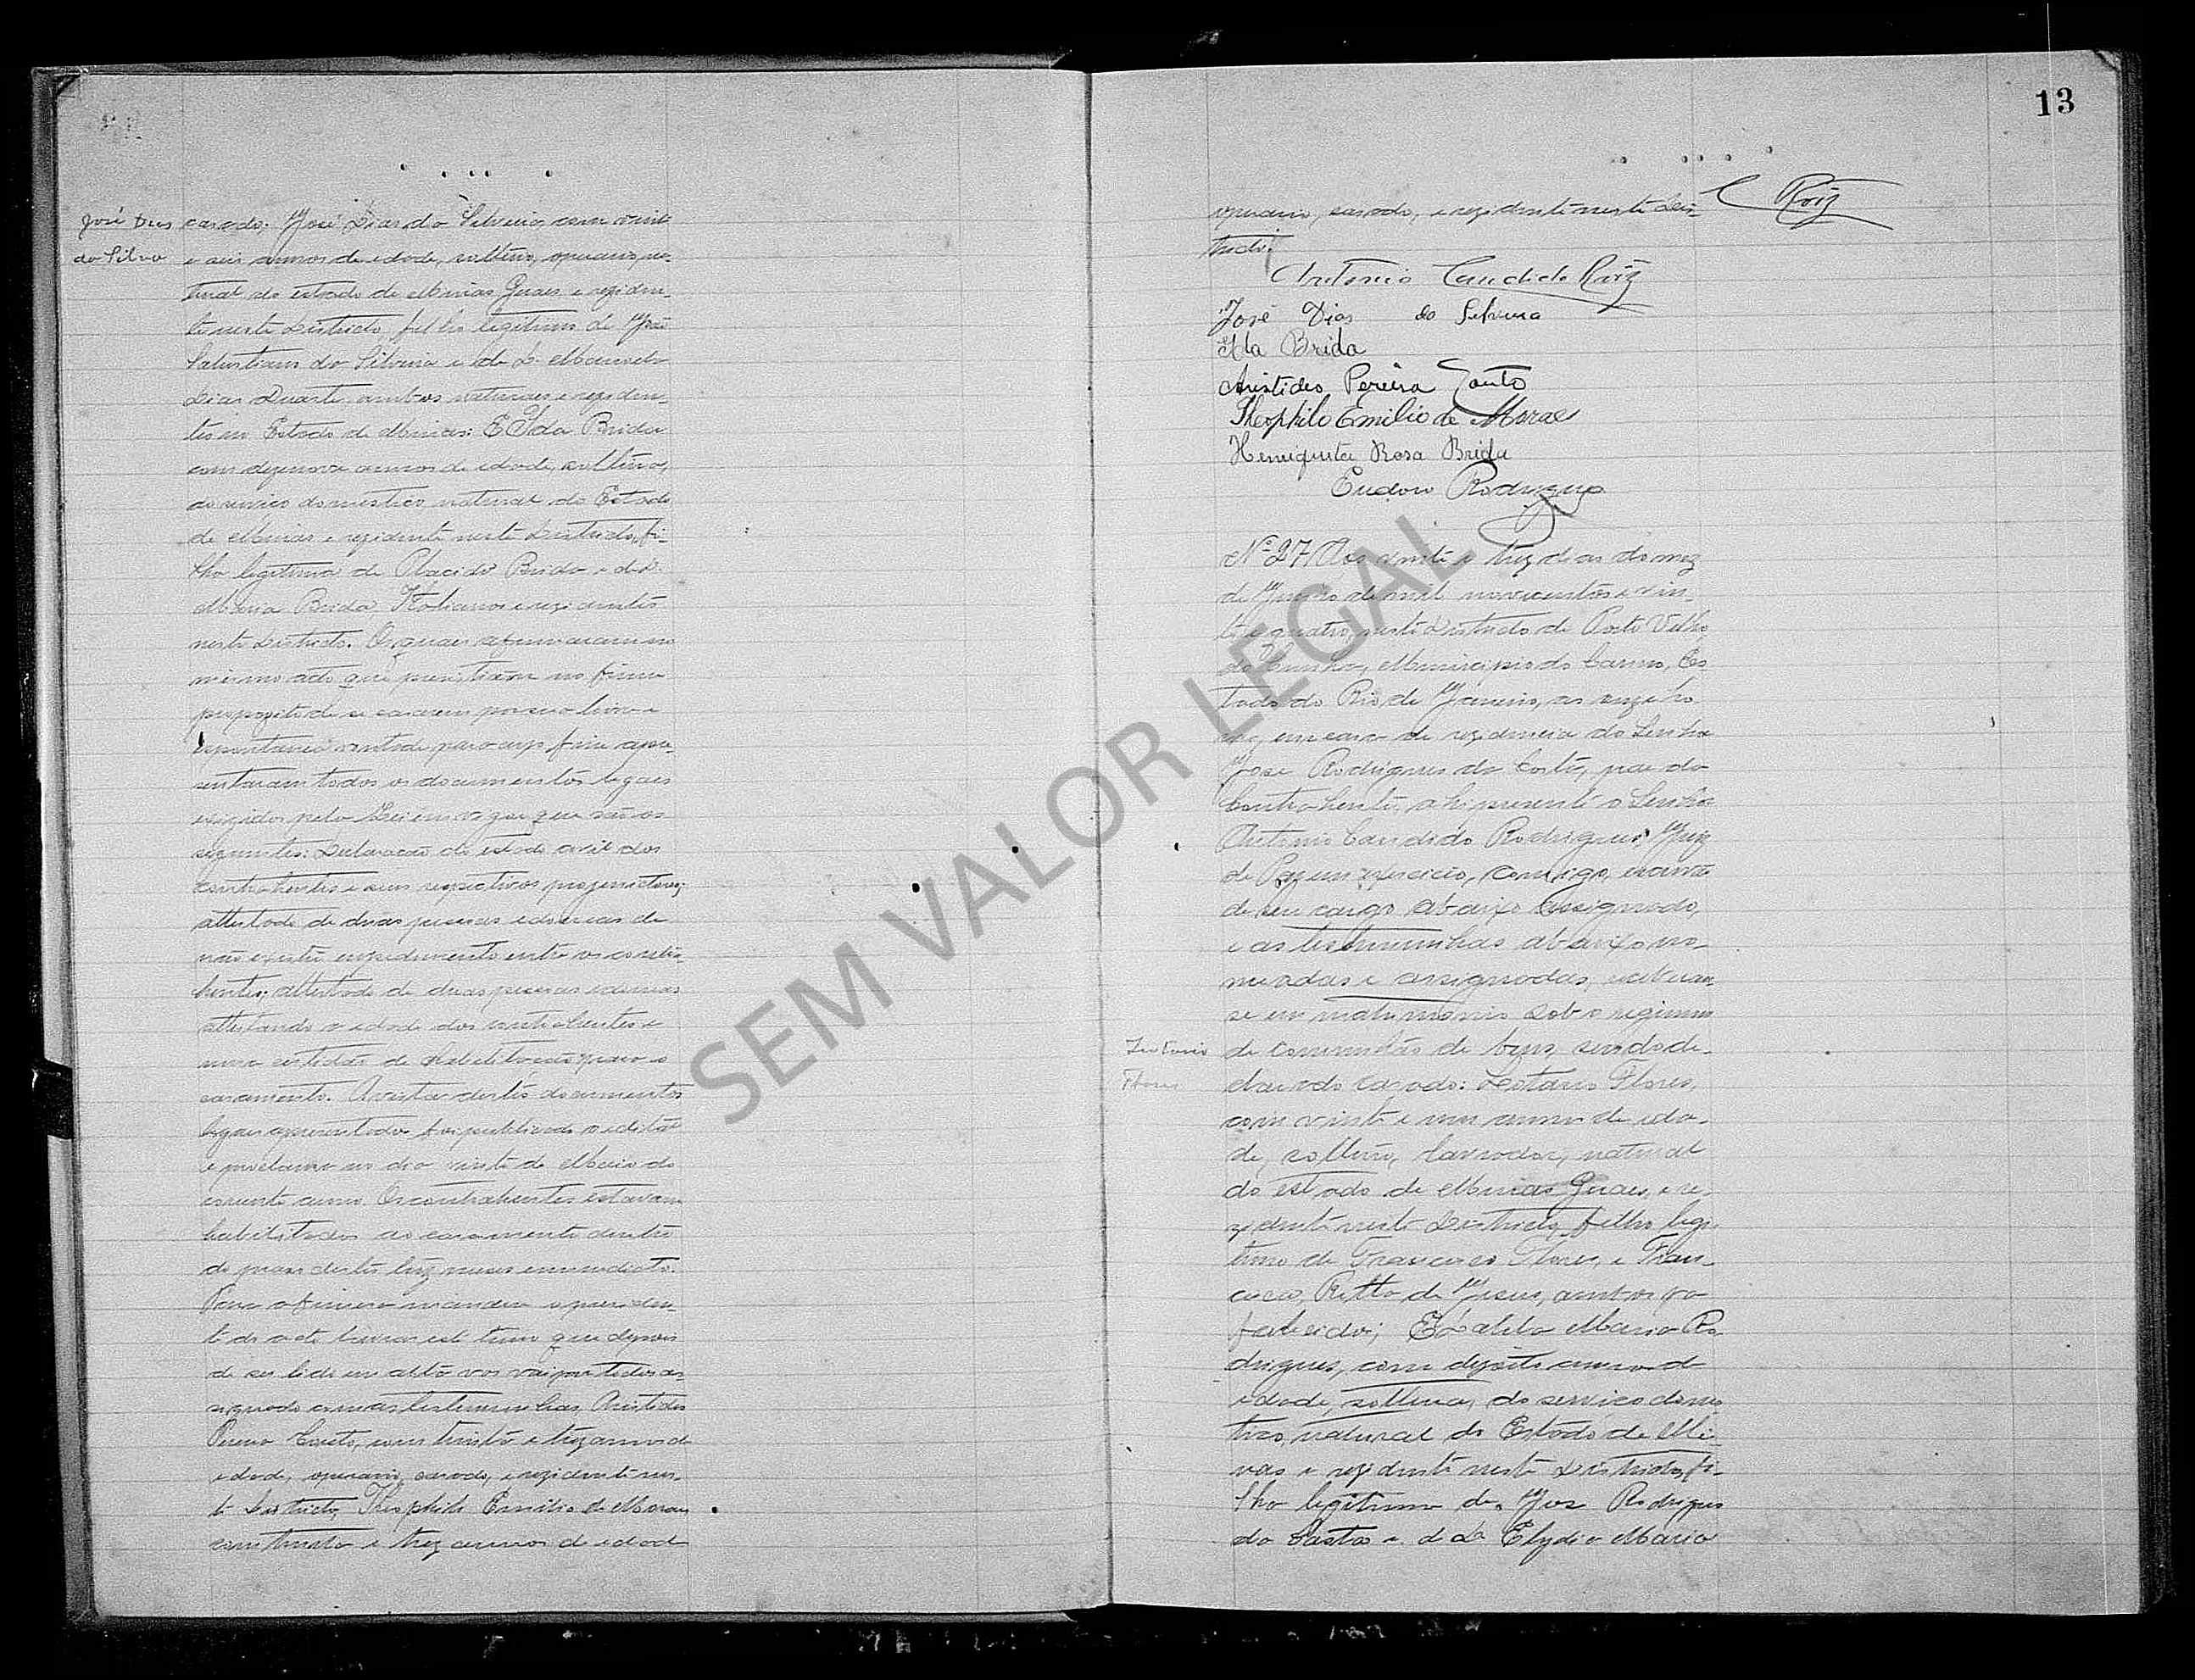 José Dias
da Silva
casado; José Dias da Silveira, com vinte
e seis annos de edade, solteiro, operario, na-
tural do estado de Minas Geraes e residen-
te neste Districto, filho legitimo de João
Salustiano da Silveira e de D. Manuela
Dias Duarte, ambos naturaes e residen-
tes no Estado de Minas: E Ida Brida
com dezenove annos de edade, solteira,
do serviço domestico, natural do Estado
de Minas e residente neste Districto, fi-
lha legitima de Placido Brida e de D.
Maria Brida, Italianos e residentes
neste Districto. Os quaes afirmaram no
mesmo acto que persistiam no firme
proposito de se casarem por sua livre e
espontanea vontade para cujo fim apre-
sentaram todos os documentos legaes
exigidos pela Lei em vigor que são os
seguintes: Declaração do estado civil dos
contrahentes e seus respectivos progenitores;
attestado de duas pessoas idoneas de
não existir impedimento entre os contra-
hentes; attestado de duas pessoas idoneas
attestando a edade dos contrahentes e
uma certidão de habilitação para o
casamento. A vista destes documentos
legaes apresentados foi publicado o edital
e proclama no dia vinte de Maio do
corrente anno. Os contrahentes estavam
habilitados ao casamento dentro
do praso destes trez mezes immediatos.
Para a firmeza mandou o presiden-
te do acto lavrar este termo que depois
de ser lido em alta voz vai por todos as-
signado com as testemunhas Aristides
Pereira Couto, com trinta e trez annos de
edade, operario, casado, e residente nes-
te Districto, Theophilo Emilio de Moraes
com trinta e trez annos de edade
13
C Roiz
operario, casado, e residente neste Dis-
tricto.
Antonio Candido Roiz
José Dias da Silveira
Ida Brida
Aristides Pereira Couto
Theophilo Emilio de Moraes
Henriqueta Rosa Brida
Eudoro Rodrigues
Nº 27 Aos vinte e trez dias do mez
de Junho de mil novecentos e vin-
te e quatro, neste Districto de Porto Velho
do Cunha, Municipio do Carmo, Es
tado do Rio de Janeiro, as onze ho
ras, em casa de residencia do Senhor
José Rodrigues da Costa, pae da
Contrahente, ahi presente o Senhor
Antonio Candido Rodrigues Juiz
de Paz em exercicio, comigo, escrivão
de seu cargo abaixo assignado,
e as testemunhas abaixo no-
meadas e assignadas, receberam
se em matrimonio sob o regimen
de communhão de bens, sendo de-
clarado casado: Leotario Flores,
com vinte e um annos de eda-
de, solteiro, lavrador, natural
do estado de Minas Geraes, e re-
zidente neste Districto, filho legi-
timo de Francisco Flores, e Fran-
cisca Ritta de Jesus, ambos ja
fallecidos; E Maria Ro
drigues, com dezoito annos de
edade, solteira, do serviço domes
tico, natural do Estado de Mi-
nas e rezidente neste Districto, fi-
lha legitima de José Rodrigues
da Costa e de D. Elydia Maria
Flores